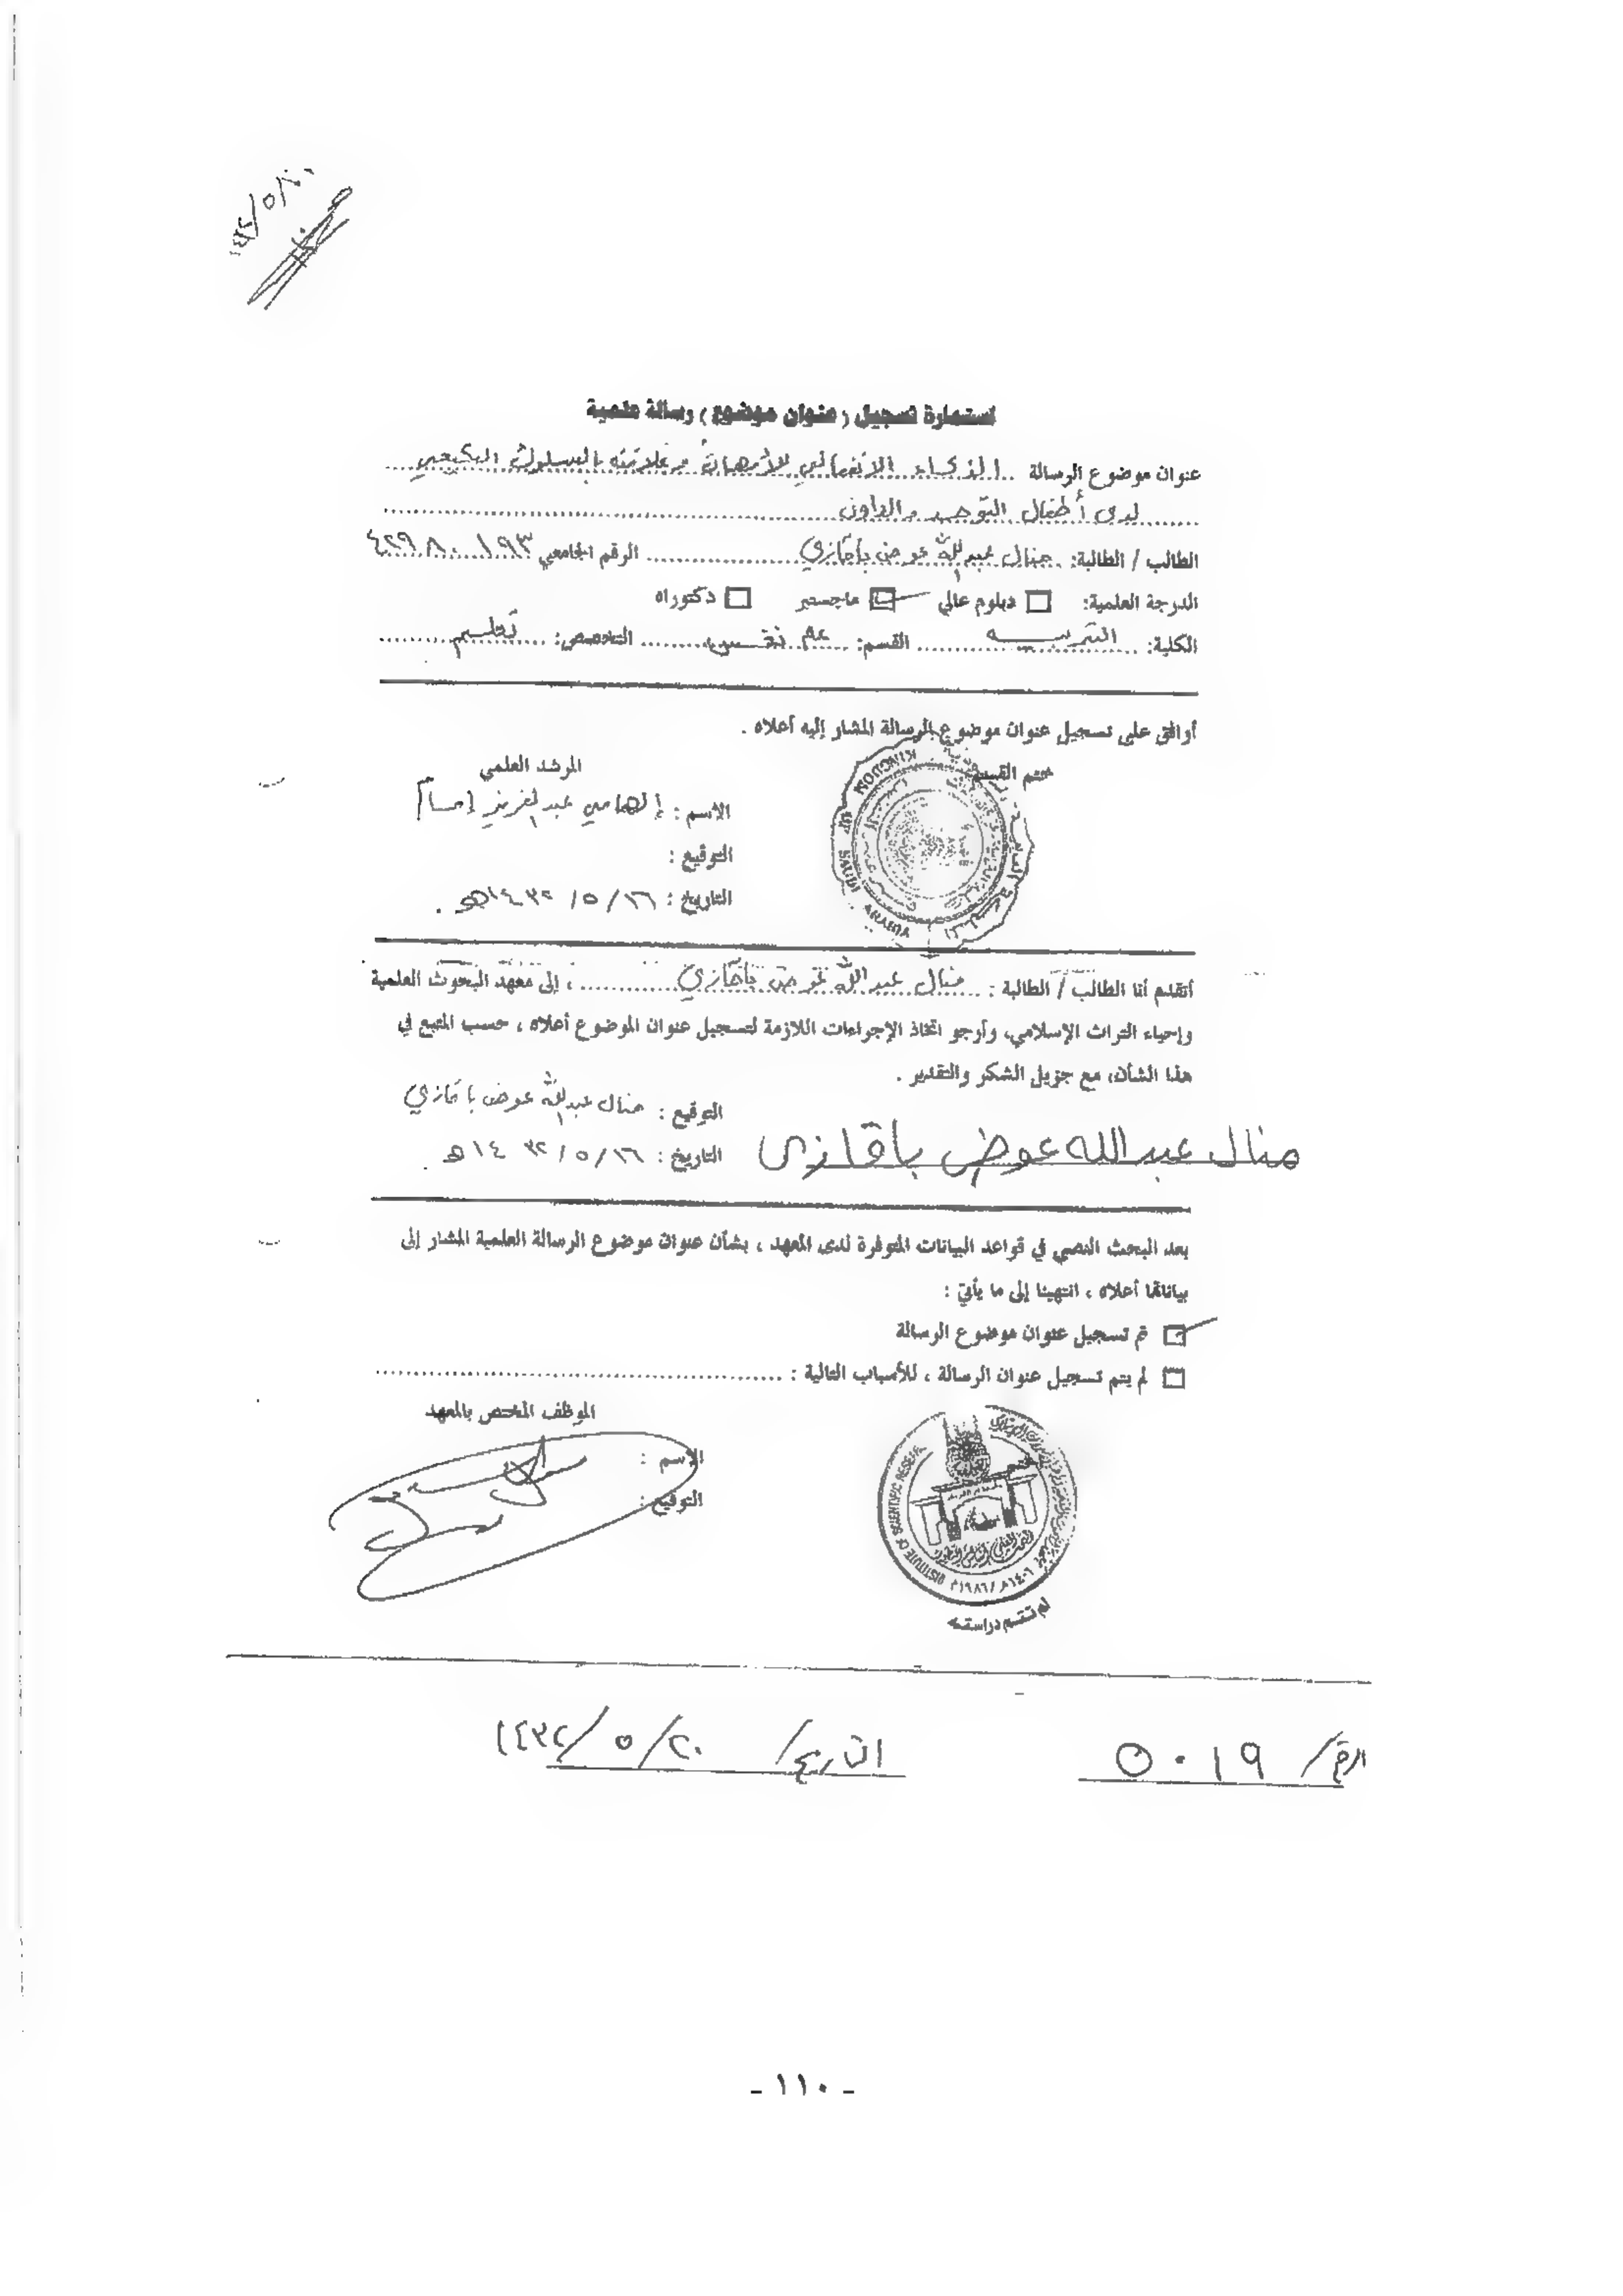 استمارة تسجيل (عنوان موضوع) رسالة علمية
عنوان موضوع الرسالة الذكاء الانفعالي للأمهات وعلاقته بالسلوك التكيفي
لدى أطفال التوحد والداون
الطالب / الطالبة: منال عبدالله عوض باقازي الرقم الجامعي ٤٢٩٨٠١٩٣
الدرجة العلمية: دبلوم عالي ماجستير دكتوراه
الكلية: التربية القسم: علم نفس التخصص: تعليم
أوافق على تسجيل عنوان موضوع الرسالة المشار إليه أعلاه .
ختم القسم المرشد العلمي
KINGDOM OF SAUDI ARABIA
الاسم : إلهامي عبدالعزيز إمام
التوقيع :
التاريخ : ١٦ / ٥ / ١٤٣٢هـ .
أتقدم أنا الطالب / الطالبة : منال عبدالله عوض باقازي ، إلى معهد البحوث العلمية
وإحياء التراث الإسلامي، وأرجو اتخاذ الإجراءات اللازمة لتسجيل عنوان الموضوع أعلاه ، حسب المتبع في
هذا الشأن، مع جزيل الشكر والتقدير .
التوقيع : منال عبدالله عوض باقازي
منال عبدالله عوض باقازي
التاريخ : ١٦ / ٥ / ١٤٣٢هـ .
بعد البحث النصي في قواعد البيانات المتوفرة لدى المعهد ، بشأن عنوان موضوع الرسالة العلمية المشار إلى
بياناتها أعلاه ، انتهينا إلى ما يأتي :
تم تسجيل عنوان موضوع الرسالة
لم يتم تسجيل عنوان الرسالة ، للأسباب التالية :
الموظف المختص بالمعهد
الاسم :
التوقيع :
INSTITUTE OF SCIENTIFIC RESEAR
١٤٠٦هـ / ١٩٨٦م
لم تتم دراسته
الرقم / ٥٠١٩ التاريخ / ٢٠ / ٥ / ١٤٣٢
- ١١٠ -